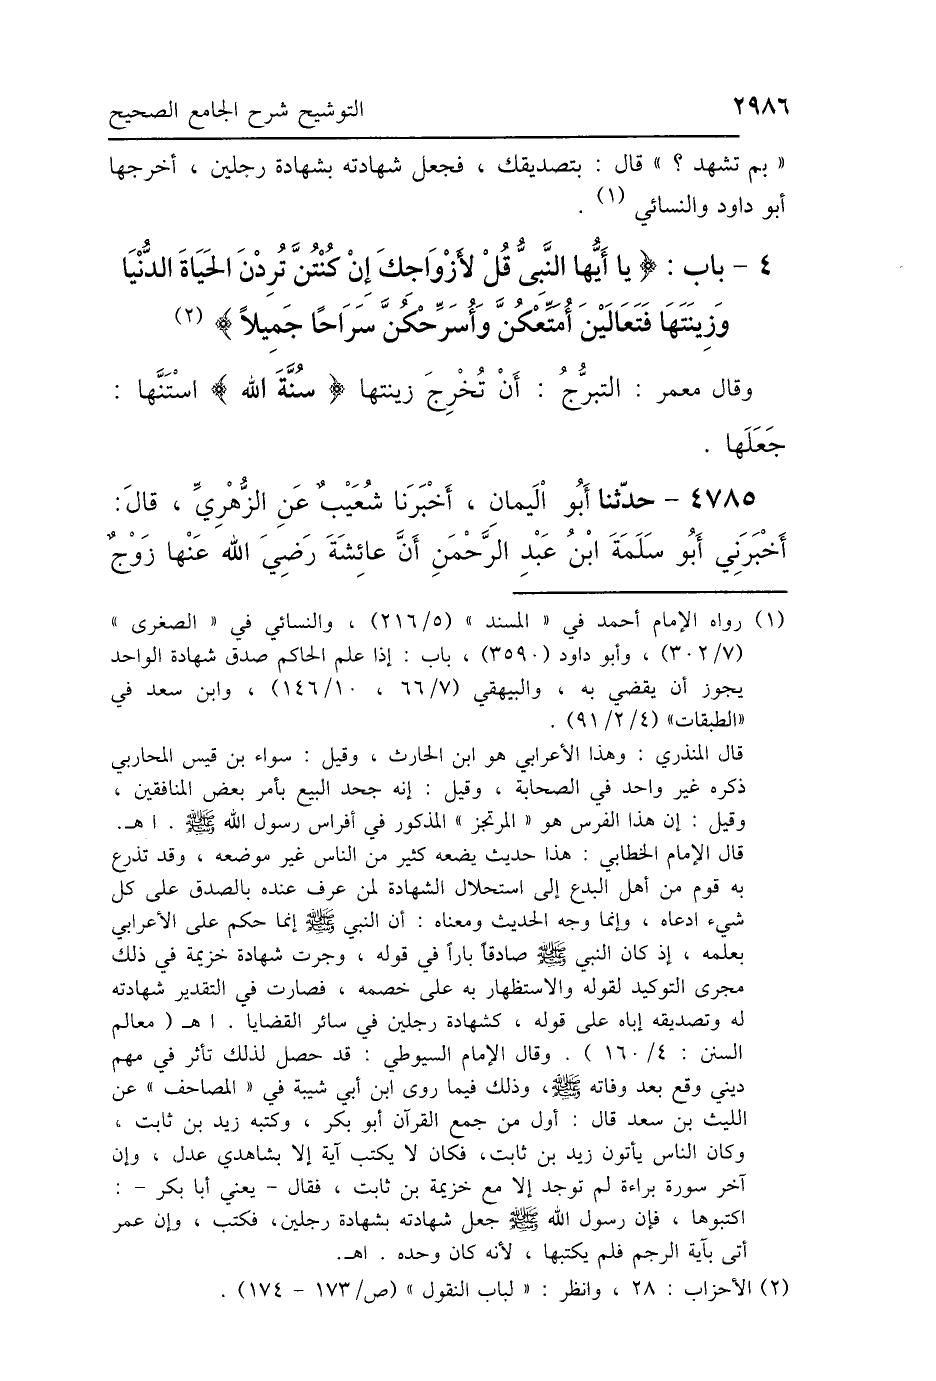 ٢٩٨٦ التوشيح شرح الجامع الصحيح
« بم تشهد ؟ » قال : بتصديقك ، فجعل شهادته بشهادة رجلين ، أخرجها
أبو داود والنسائي (١) .
٤ - باب : ﴿ يا أَيُّها النَّبيُّ قُلْ لأَزْوَاجِكَ إِنْ كُنْتُنَّ تُرِدْنَ الحَيَاةَ الدُّنْيَا
وَزِينَتَهَا فَتَعَالَيْنَ أُمَتِّعْكُنَّ وَأُسَرِّحْكُنَّ سَرَاحًا جَمِيلاً ﴾ (٢)
وقال معمر : التبرُّجُ : أَنْ تُخْرِجَ زينتها ﴿ سُنَّةَ الله ﴾ استَنَّها :
جَعَلَها .
٤٧٨٥ - حدّثنا أَبُو الْيمانِ ، أَخْبَرَنَا شُعَيْبٌ عَنِ الزُّهْرِيِّ ، قالَ:
أَخْبَرَنِي أَبُو سَلَمَةَ ابْنُ عَبْدِ الرَّحْمٰنِ أَنَّ عائِشَةَ رَضِيَ الله عَنْها زَوْجُ
(١) رواه الإمام أحمد في « المسند » (٢١٦/٥) ، والنسائي في « الصغرى »
(٣٠٢/٧) ، وأبو داود (٣٥٩٠) ، باب : إذا علم الحاكم صدق شهادة الواحد
يجوز أن يقضي به ، والبيهقي (٦٦/٧ ، ١٤٦/١٠) ، وابن سعد في
«الطبقات» (٩١/٢/٤) .
قال المنذري : وهذا الأعرابي هو ابن الحارث ، وقيل : سواء بن قيس المحاربي
ذكره غير واحد في الصحابة ، وقيل : إنه جحد البيع بأمر بعض المنافقين ،
وقيل : إن هذا الفرس هو « المرتجز » المذكور في أفراس رسول الله ﷺ . ا هـ.
قال الإمام الخطابي : هذا حديث يضعه كثير من الناس غير موضعه ، وقد تذرع
به قوم من أهل البدع إلى استحلال الشهادة لمن عرف عنده بالصدق على كل
شيء ادعاه ، وإنما وجه الحديث ومعناه : أن النبي ﷺ إنما حكم على الأعرابي
بعلمه ، إذ كان النبي ﷺ صادقاً باراً في قوله ، وجرت شهادة خزيمة في ذلك
مجرى التوكيد لقوله والاستظهار به على خصمه ، فصارت في التقدير شهادته
له وتصديقه إياه على قوله ، كشهادة رجلين في سائر القضايا . ا هـ ( معالم
السنن : ١٦٠/٤ ) . وقال الإمام السيوطي : قد حصل لذلك تأثر في مهم
ديني وقع بعد وفاته ﷺ، وذلك فيما روى ابن أبي شيبة في « المصاحف » عن
الليث بن سعد قال : أول من جمع القرآن أبو بكر ، وكتبه زيد بن ثابت ،
وكان الناس يأتون زيد بن ثابت، فكان لا يكتب آية إلا بشاهدي عدل ، وإن
آخر سورة براءة لم توجد إلا مع خزيمة بن ثابت ، فقال - يعني أبا بكر - :
اكتبوها ، فإن رسول الله ﷺ جعل شهادته بشهادة رجلين، فكتب ، وإن عمر
أتى بآية الرجم فلم يكتبها ، لأنه كان وحده . اهـ.
(٢) الأحزاب : ٢٨ ، وانظر : « لباب النقول » (ص/ ١٧٣ - ١٧٤) .